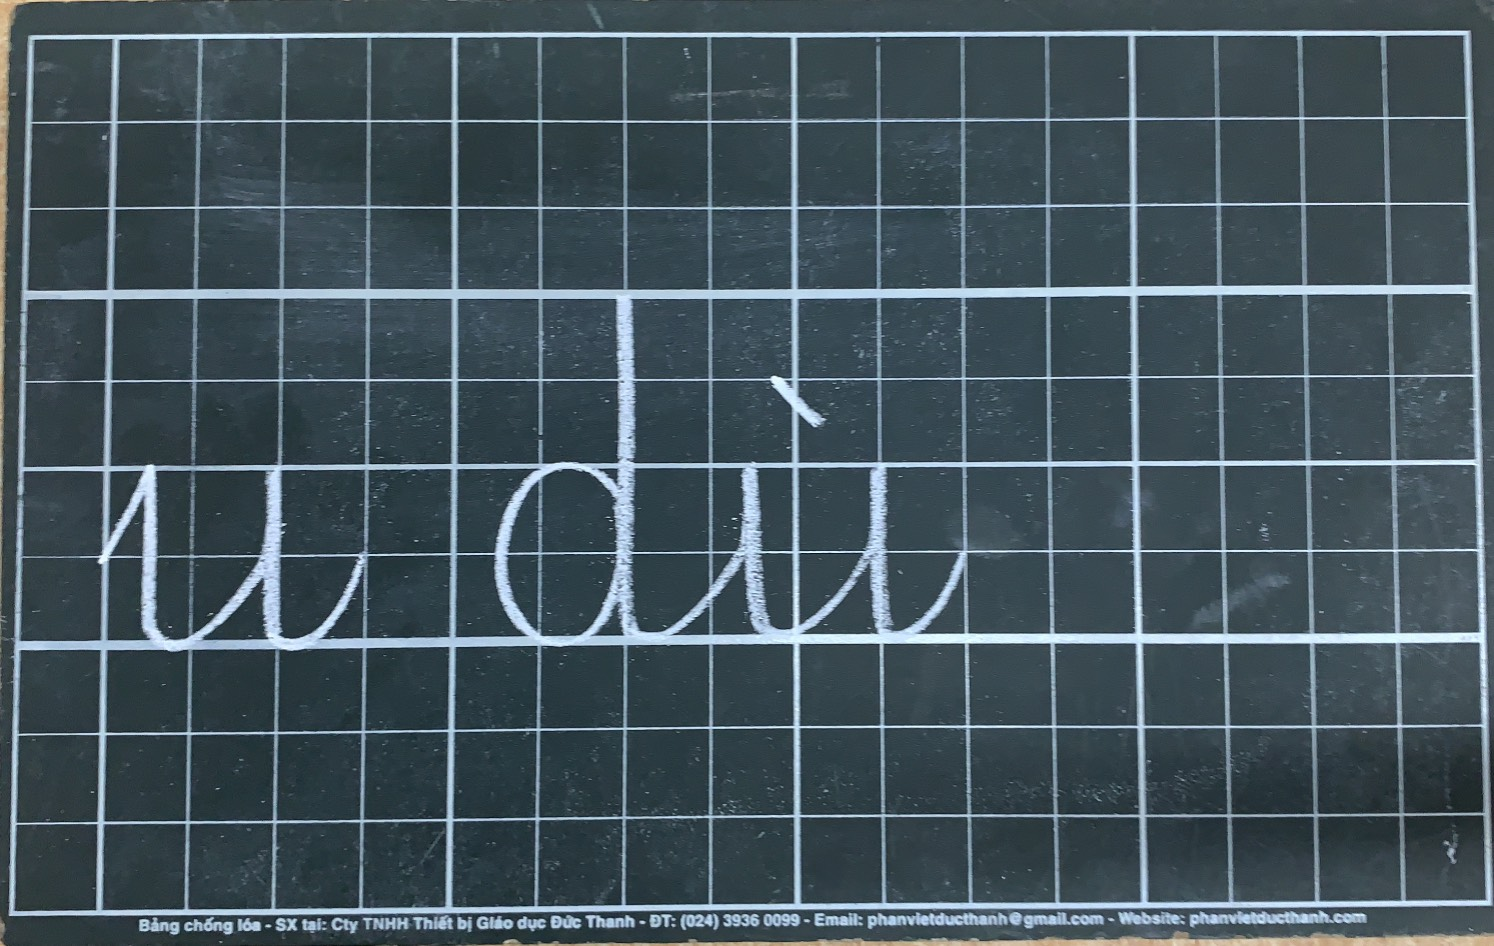 u dù
Bảng chống lóa - SX tại: Cty TNHH Thiết bị Giáo dục Đức Thanh - ĐT: (024) 3936 0099 - Email: phanvietducthanh@gmail.com - Website: phanvietducthanh.com